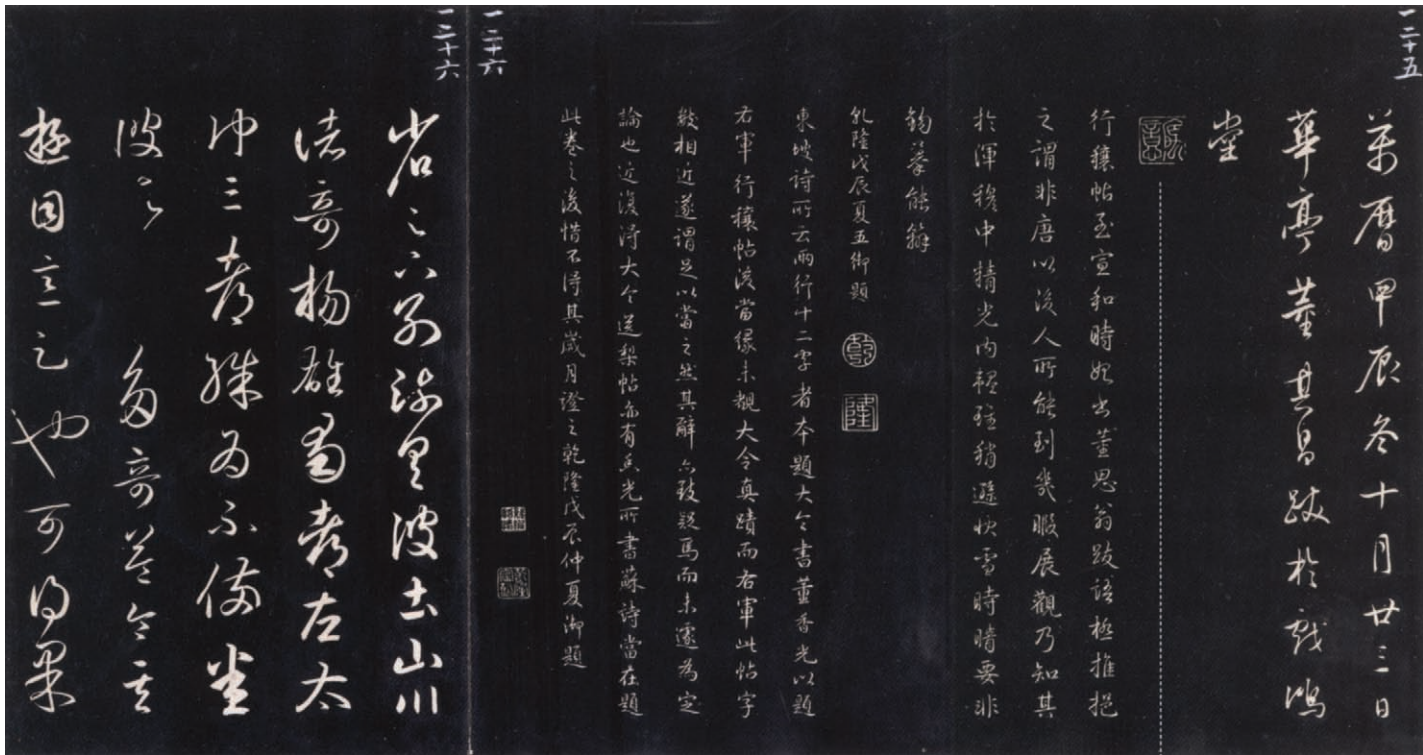 一二十五
萬曆甲辰冬十月廿三日
華亭董其昌跋於戲鴻
堂
行穰帖至宣和時始出董思翁跋語極推挹
之謂非唐以後人所能到幾暇展觀乃知其
於渾穆中精光內韞雖稍遜快雪時晴要非
鉤摹能辦
乾隆戊辰夏五御題
乾
隆
東坡詩所云兩行十二字者本題大令書董香光以題
右軍行穰帖後當緣未覩大令真蹟而右軍此帖字
數相近遂謂足以當之然其辭亦致疑焉而未遽為定
論也近復得大令送梨帖亦有香光所書蘇詩當在題
此卷之後惜不得其歲月證之乾隆戊辰仲夏御題
一二十六
一二十六
省足下別疏具彼土山川
諸奇楊雄蜀都左太
沖三都殊為不備悉
彼故為多奇益令其
遊目意足也可得果